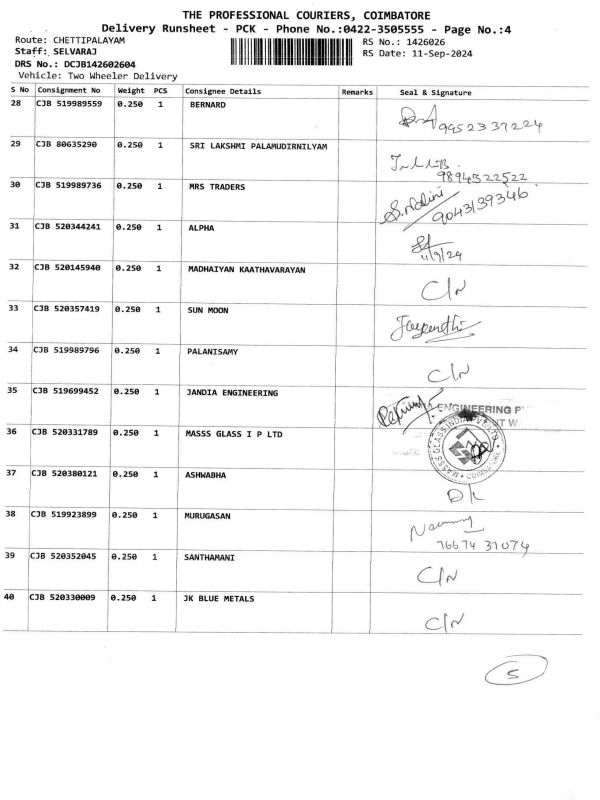 THE PROFESSIONAL COURIERS, COIMBATORE
Delivery Runsheet - PCK - Phone No.:0422-3505555 - Page No.:4
Route: CHETTIPALAYAM RS No.: 1426026
Staff: SELVARAJ RS Date: 11-Sep-2024
DRS No.: DCJB142602604
Vehicle: Two Wheeler Delivery
S No Consignment No Weight PCS Consignee Details Remarks Seal & Signature
28 CJB 519989559 0.250 1 BERNARD
9952337224
29 CJB 80635290 0.250 1 SRI LAKSHMI PALAMUDIRNILYAM
9894322522
30 CJB 519989736 0.250 1 MRS TRADERS
S.Nalini 9043139346
31 CJB 520344241 0.250 1 ALPHA
11/9/24
32 CJB 520145940 0.250 1 MADHAIYAN KAATHAVARAYAN
C/N
33 CJB 520357419 0.250 1 SUN MOON
Jayanthi
34 CJB 519989796 0.250 1 PALANISAMY
C/N
35 CJB 519699452 0.250 1 JANDIA ENGINEERING
ENGINEERING P
36 CJB 520331789 0.250 1 MASSS GLASS I P LTD
MASSS GLASS INDIA PVT LTD COIMBATORE
37 CJB 520380121 0.250 1 ASHWABHA
38 CJB 519923899 0.250 1 MURUGASAN
76674 31074
39 CJB 520352045 0.250 1 SANTHAMANI
C/N
40 CJB 520330009 0.250 1 JK BLUE METALS
C/N
5